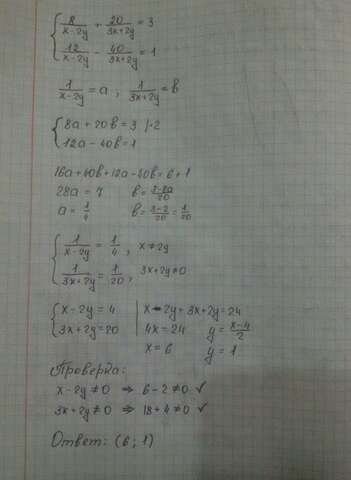 { 8/(x-2y) + 20/(3x+2y) = 3
12/(x-2y) - 40/(3x+2y) = 1
1/(x-2y) = a , 1/(3x+2y) = b
{ 8a + 20b = 3 |·2
12a - 40b = 1
16a + 40b + 12a - 40b = 6 + 1
28a = 7 b = (3-8a)/20
a = 1/4 b = (3-2)/20 = 1/20
{ 1/(x-2y) = 1/4 , x ≠ 2y
1/(3x+2y) = 1/20 , 3x+2y ≠ 0
{ x - 2y = 4 | x - 2y + 3x + 2y = 24
3x + 2y = 20 | 4x = 24 y = (x-4)/2
x = 6 y = 1
Проверка:
x - 2y ≠ 0 ⇒ 6 - 2 ≠ 0 ✓
3x + 2y ≠ 0 ⇒ 18 + 4 ≠ 0 ✓
Ответ: (6 ; 1)